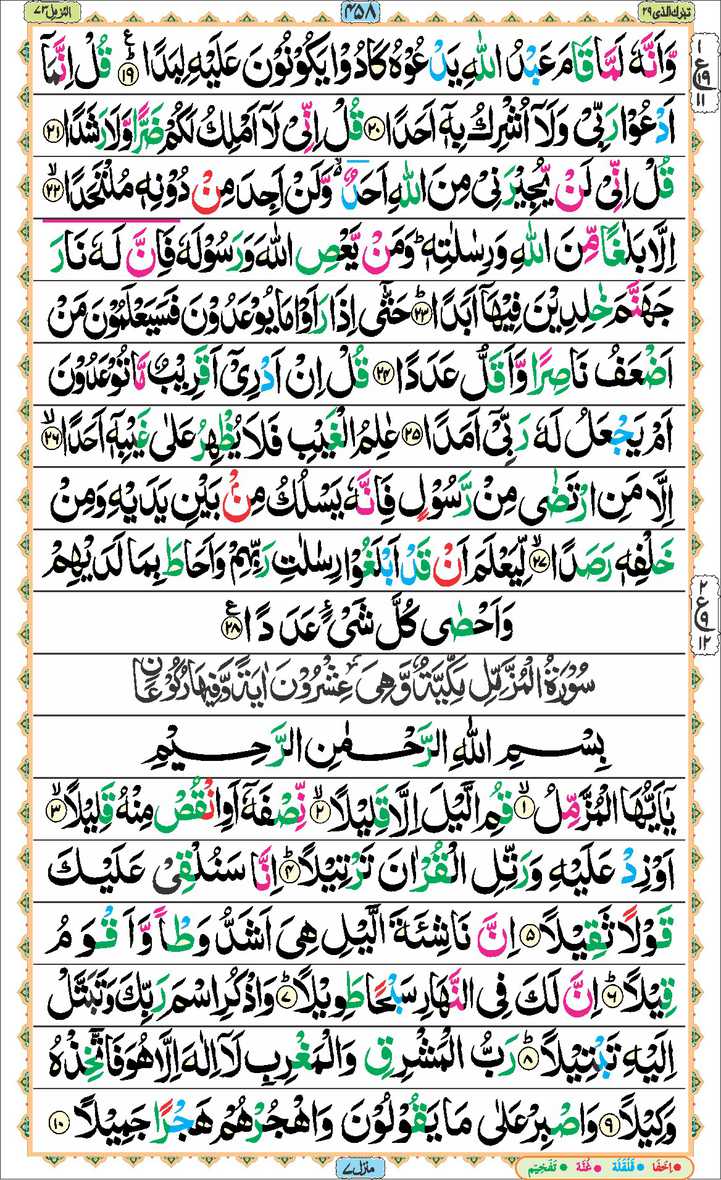 تبٰرك الذي ٢٩
٤٥٨
المزمل ٧٣
وَّاَنَّهٗ لَمَّا قَامَ عَبْدُ اللّٰهِ يَدْعُوْهُ كَادُوْا يَكُوْنُوْنَ عَلَيْهِ لِبَدًا ؕ ١٩ قُلْ اِنَّمَاۤ
اَدْعُوْا رَبِّىْ وَلَاۤ اُشْرِكُ بِهٖۤ اَحَدًا ٢٠ قُلْ اِنِّىْ لَاۤ اَمْلِكُ لَكُمْ ضَرًّا وَّلَا رَشَدًا ٢١
قُلْ اِنِّىْ لَنْ يُّجِيْرَنِىْ مِنَ اللّٰهِ اَحَدٌ ۙ وَّلَنْ اَجِدَ مِنْ دُوْنِهٖ مُلْتَحَدًا ۙ ٢٢
اِلَّا بَلٰغًا مِّنَ اللّٰهِ وَرِسٰلٰتِهٖ ؕ وَمَنْ يَّعْصِ اللّٰهَ وَرَسُوْلَهٗ فَاِنَّ لَهٗ نَارَ
جَهَنَّمَ خٰلِدِيْنَ فِيْهَاۤ اَبَدًا ؕ ٢٣ حَتّٰٓى اِذَا رَاَوْا مَا يُوْعَدُوْنَ فَسَيَعْلَمُوْنَ مَنْ
اَضْعَفُ نَاصِرًا وَّاَقَلُّ عَدَدًا ٢٤ قُلْ اِنْ اَدْرِىْۤ اَقَرِيْبٌ مَّا تُوْعَدُوْنَ
اَمْ يَجْعَلُ لَهٗ رَبِّىْۤ اَمَدًا ٢٥ عٰلِمُ الْغَيْبِ فَلَا يُظْهِرُ عَلٰى غَيْبِهٖۤ اَحَدًا ۙ ٢٦
اِلَّا مَنِ ارْتَضٰى مِنْ رَّسُوْلٍ فَاِنَّهٗ يَسْلُكُ مِنْۢ بَيْنِ يَدَيْهِ وَمِنْ
خَلْفِهٖ رَصَدًا ۙ ٢٧ لِّيَعْلَمَ اَنْ قَدْ اَبْلَغُوْا رِسٰلٰتِ رَبِّهِمْ وَاَحَاطَ بِمَا لَدَيْهِمْ
وَاَحْصٰى كُلَّ شَىْءٍ عَدَدًا ٢٨
سُوْرَةُ الْمُزَّمِّلِ مَكِّيَّةٌ وَّهِىَ عِشْرُوْنَ اٰيَةً وَّفِيْهَا رُكُوْعَانِ
بِسْمِ اللّٰهِ الرَّحْمٰنِ الرَّحِيْمِ
يٰۤاَيُّهَا الْمُزَّمِّلُ ۙ ١ قُمِ الَّيْلَ اِلَّا قَلِيْلًا ۙ ٢ نِّصْفَهٗۤ اَوِ انْقُصْ مِنْهُ قَلِيْلًا ۙ ٣
اَوْ زِدْ عَلَيْهِ وَرَتِّلِ الْقُرْاٰنَ تَرْتِيْلًا ؕ ٤ اِنَّا سَنُلْقِىْ عَلَيْكَ
قَوْلًا ثَقِيْلًا ٥ اِنَّ نَاشِئَةَ الَّيْلِ هِىَ اَشَدُّ وَطْاً وَّاَقْوَمُ
قِيْلًا ؕ ٦ اِنَّ لَكَ فِى النَّهَارِ سَبْحًا طَوِيْلًا ؕ ٧ وَاذْكُرِ اسْمَ رَبِّكَ وَتَبَتَّلْ
اِلَيْهِ تَبْتِيْلًا ؕ ٨ رَبُّ الْمَشْرِقِ وَالْمَغْرِبِ لَاۤ اِلٰهَ اِلَّا هُوَ فَاتَّخِذْهُ
وَكِيْلًا ٩ وَاصْبِرْ عَلٰى مَا يَقُوْلُوْنَ وَاهْجُرْهُمْ هَجْرًا جَمِيْلًا ١٠
١ ع ١٩ ١١
٢ ع ٩ ١٢
منزل ٧
اِخفَا قَلقَلَة غُنَّة تَفخِيم